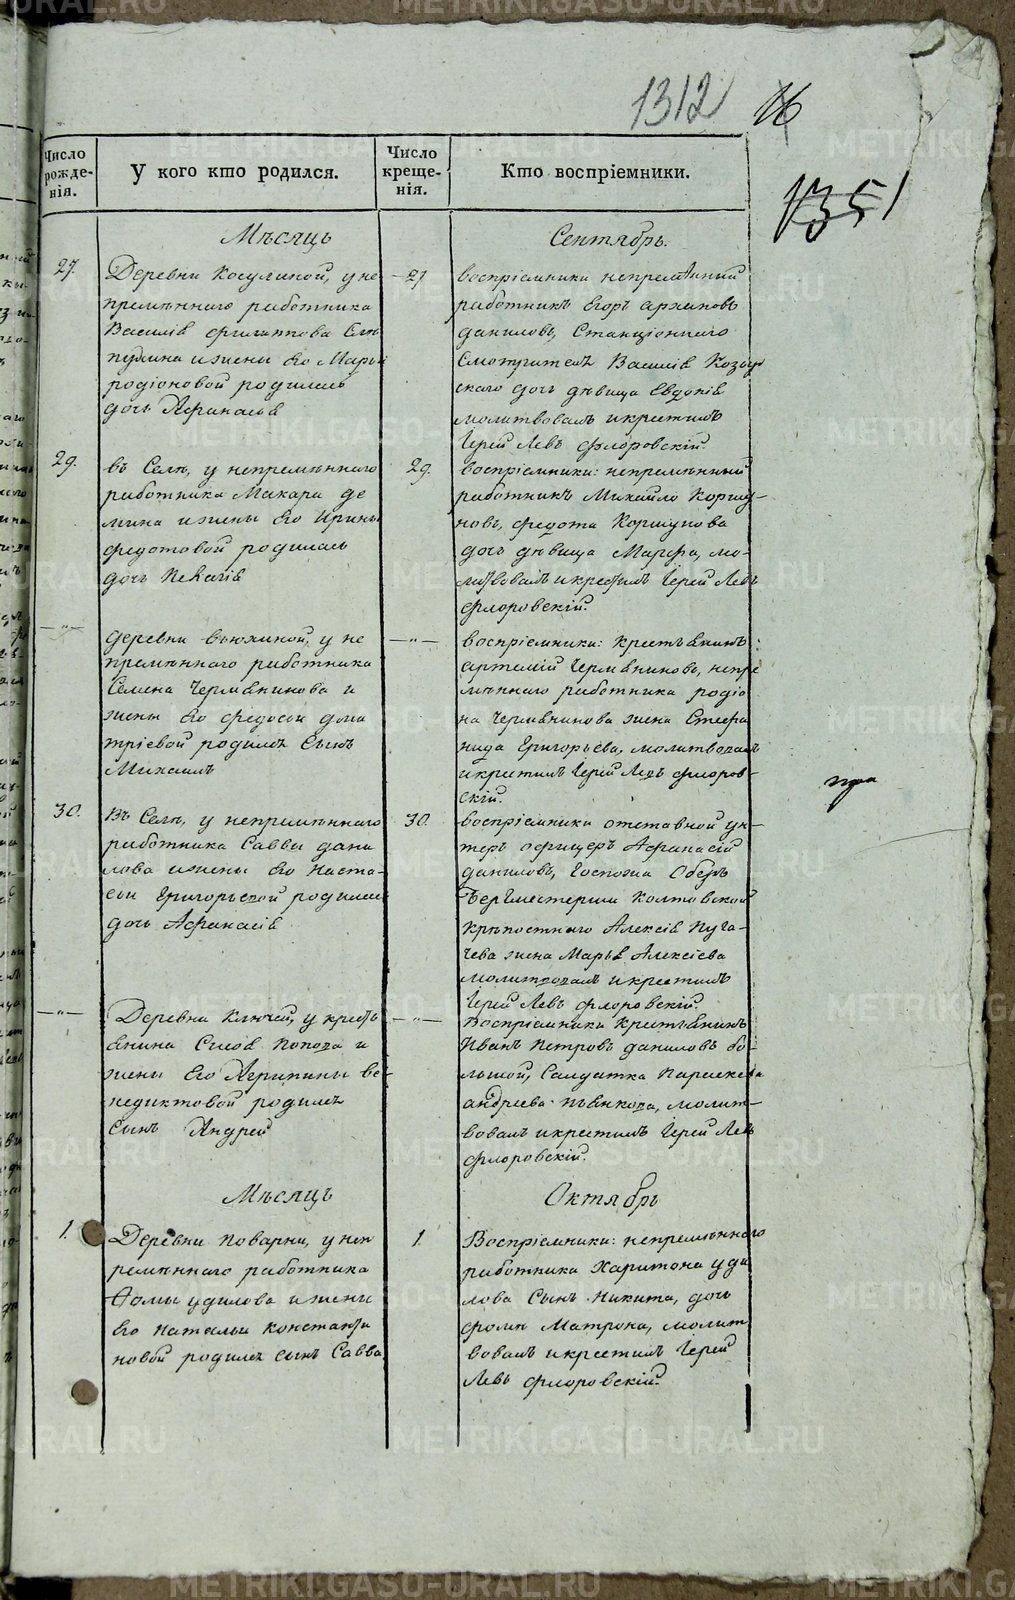 1312 16
1351
Число рожде-нія.
У кого кто родился.
Число креще-нія.
Кто воспріемники.
Мѣсяцъ
Сентябрь.
27.
Деревни Косулиной, у не
премѣннаго работника
Василія Филиппова
и жены его Марьи
родіоновой родилась
дочь Афанасія
27
воспріемники непремѣнний
работникъ Егоръ архиповъ
даниловъ, Станціоннаго
Смотрителя Василія
скаго дочь дѣвица Евдокія
молитвовалъ и крестилъ
Іерей Левъ флоровскій.
29.
въ Селѣ, у непремѣннаго
работника Макара де
мина и жены его Ирины
федотовой родилась
дочь Пелагія
29.
воспріемники: непремѣнный
работникъ Михайло Коршу-
новъ, федота Коршунова
дочь дѣвица Марфа, мо-
литвовалъ и крестилъ Іерей Левъ
флоровскій.
—"—
деревни вьюхиной, у не
премѣннаго работника
Семена Чермянинова и
жены его федосьи дми
тріевой родился Сынъ
Михаилъ
—"—
воспріемники: крестьянинъ
артемій Чермяниновъ, непре
мѣннаго работника родіо
на Чермянинова жена Стефа
нида Григорьева, молитвовалъ
и крестилъ Іерей Левъ флоров-
скій.
30.
Въ Селѣ, у непремѣннаго
работника Саввы дани
лова и жены его Наста-
сьи Григорьевой родилась
дочь Афанасія
30.
воспріемники отставной ун-
теръ офицеръ Афанасій
даниловъ, Госпожи Оберъ
Бергмейстерши Колтовской
крѣпостнаго Алексія Пуга-
чева жена Марья Алексіева
молитвовалъ и крестилъ
Іерей Левъ флоровскій.
—"—
Деревни Ключей, у кресть
янина Сысоя Попова и
жены Его Агрипины ве-
недиктовой родился
сынъ Андрей
—"—
Воспріемники крестьянинъ
Иванъ Петровъ даниловъ бо-
льшой, Салдатка Параскева
андреева пьянкова, молит-
вовалъ и крестилъ Іерей Левъ
флоровскій.
Мѣсяцъ
Октябрь
1.
Деревни Поварни, у неп
ремѣннаго работника
Ѳомы удилова и жены
Его Натальи константи
новой родился сынъ Савва
1.
Воспріемники: непремѣннаго
работника Харитона уди
лова Сынъ Никита, дочь
фомы Матрона, молит
вовалъ и крестилъ Іерей
Левъ флоровскій.
METRIKI.GASO-URAL.RU